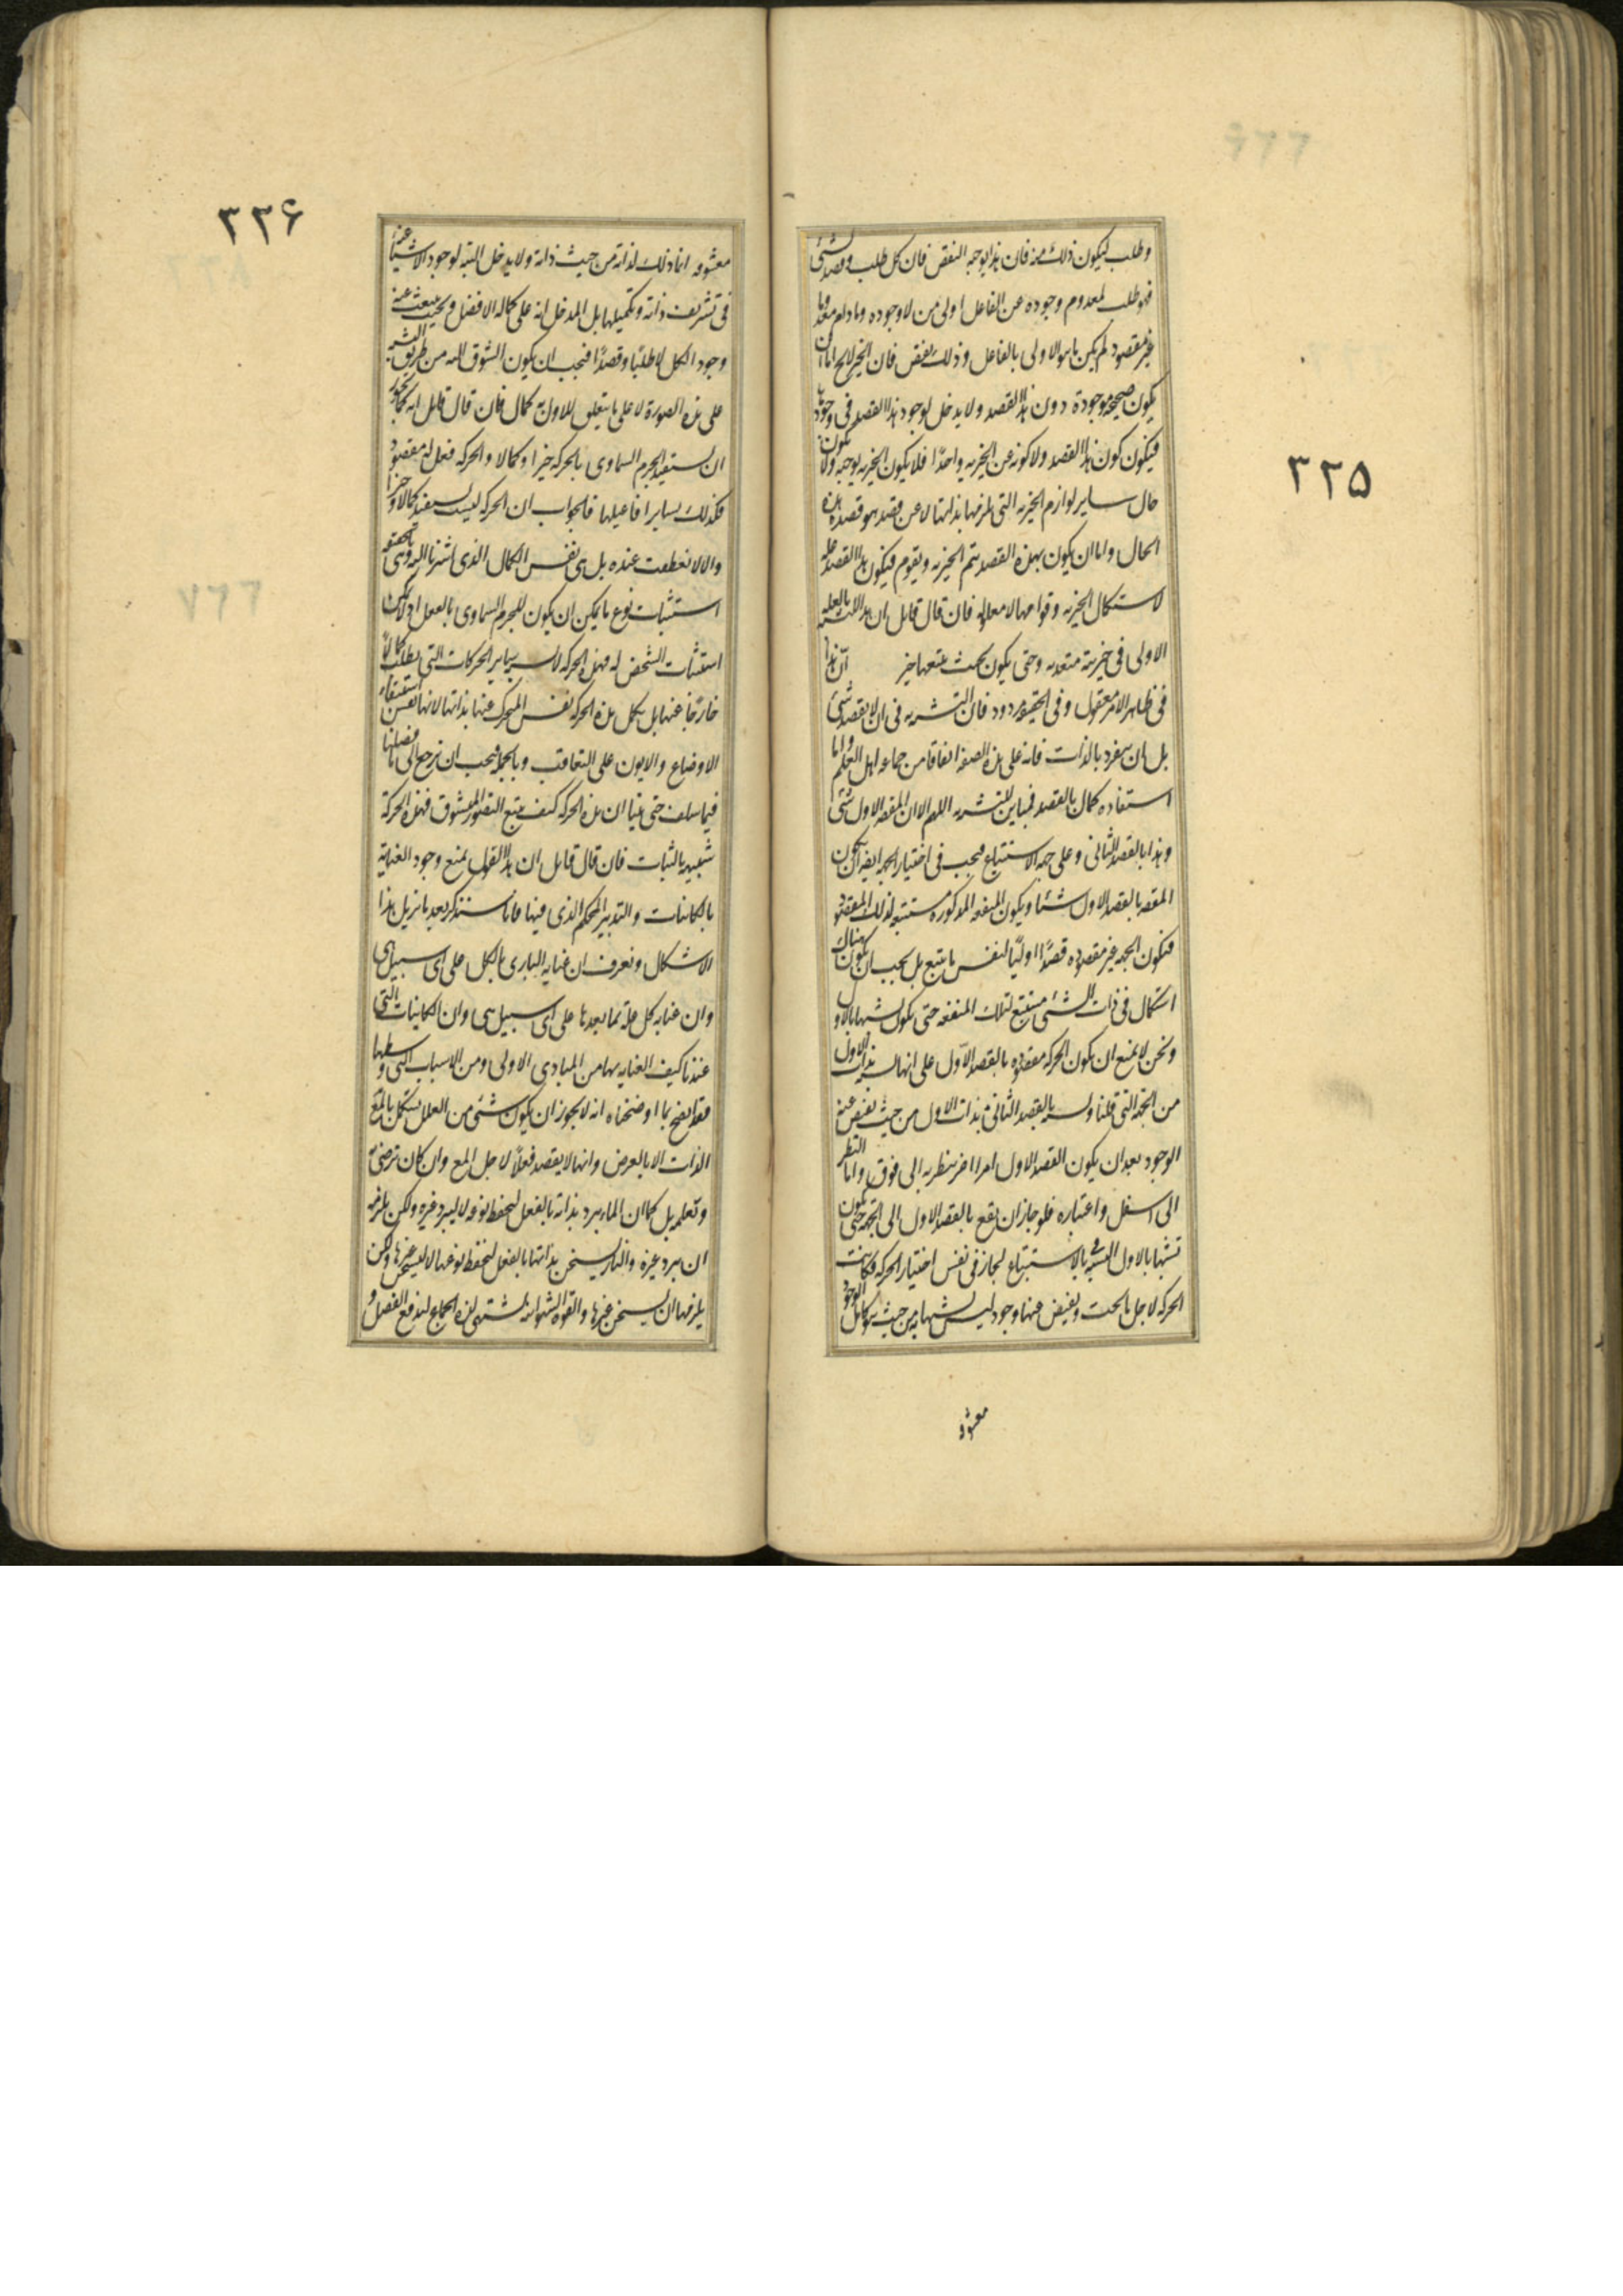 ٣٢٥
وطلب ليكون ذلك منه فان هذا يوجب النقص فان كل طلب وقصد لشئ
فهو طلب لمعدوم وجوده عن الفاعل اولى من لا وجوده وما دام معدوما
غير مقصود لم يكن ما هو الاولى بالفاعل وذلك نقص فان الخيرية اما ان
يكون صحيحه موجودة دون هذا القصد ولا يدخل لوجود هذا القصد فى وجودها
فيكون كون هذا القصد ولا كونه عن الخيريه واحدًا فلا يكون الخيريه يوجبه ولا يكون
حال ساير لوازم الخيريه التى يلزمها بذاتها لا عن قصد هو قصده هذه
الحال واما ان يكون بهذه القصد يتم الخيريه ويقوم فيكون هذا القصد عله
لاستكمال الخيريه وقوامها لا معلوله فان قال قايل ان هذا للتشبه بالعله
الاولى فى خيرية متعديه وحتى يكون بحيث يتبعها خير انّ هذا
فى ظاهر الامر مقبول وفى الحقيقه مردود فان التشبه به فى ان لا يقصد شئ
بل بان ينفرد بالذات فانه على هذه الصفه اتفاقا من جماعه اهل العلم واما
استفاده كمال بالقصد فمباين للتشبه به اللهم الا ان المقصود الاول شئ
وهذا بالقصد الثانى وعلى جهه الاستتباع فيجب فى اختيار الجهه ايضا ان يكون
المقصود بالقصد الاول شئا ويكون المنفعه المذكوره مستتبعه لذلك المقصود
فيكون الجهه غير مقصوده قصدًا اوليًا لنفس ما يتبع بل يجب ان يكون هناك
استكمال فى ذات الشئ مستتبع لتلك المنفعه حتى يكون تشبها بالاول
ونحن لا نمنع ان يكون الحركه مقصوده بالقصد الاول على انها تشبه بذات الاول
من الجهة التى قلنا وتشبه بالقصد الثانى بذات الاول من حيث يفيض عنه
الوجود بعد ان يكون القصد الاول امرا اخر ينظر به الى فوق واما النظر
الى اسفل واعتباره فلو جاز ان يقع بالقصد الاول الى الجهه حتى يكون
تشبها بالاول فى التشبه بالاستتباع لجاز فى نفس اختيار الحركه فكانت
الحركه لاجل ما تحت ويفيض عنها وجود ليس تشبها به من حيث هو كامل الوجود
معشوق
٣٢۶
معشوقه انما ذلك لذاته من حيث ذاته ولا يدخل البته لوجود الاشيا عنه
فى تشريف ذاته وتكميلها بل المدخل انه على كماله الافضل وبحيث ينبعث عنه
وجود الكل لا طلبًا وقصدًا فيجب ان يكون الشوق اليه من طريق التشبه
على هذه الصورة لا على ما يتعلق للاول به كمال فان قال قايل انه كما يجوز
ان يستفيد الجرم السماوى بالحركه خيرا وكمالا والحركه فعل له مقصود
فكذلك ساير افاعيلها فالجواب ان الحركه ليست يستفيد كمالا وخيرا
والا لانقطعت عنده بل هى نفس الكمال الذى اشرنا اليه وهى بالحقيقه
استثبات نوع ما يمكن ان يكون للجرم السماوى بالفعل اذ لا يمكن
استثبات الشخص له فهذه الحركه لا تشبه ساير الحركات التى يطلب كمالاً
خارجا عنها بل يكمل هذه الحركه نفس المتحرك عنها بذاتها لانها نفس استبقاء
الاوضاع والايون على التعاقب وبالجمله فيجب ان نرجع الى ما فصلناه
فيما سلف حتى بينا ان هذه الحركه كيف يتبع التصور المعشوق فهذه الحركة
شبيهه بالثبات فان قال قايل ان هذا القول يمنع وجود العناية
بالكاينات والتدبير المحكم الذى فيها فانا سنذكر بعد ما يزيل هذا
الاشكال ونعرف ان عنايه البارى بالكل على اى سبيل هى
وان عنايه كل علة بما بعدها على اى سبيل هى وان الكاينات التى
عندنا كيف العنايه بها من المبادى الاولى ومن الاسباب التى وسطها
فقد اتضح بما اوضحناه انه لا يجوز ان يكون شئ من العلل يستكمل بالمع
الذات الا بالعرض وانها لا يقصد فعلاً لاجل المع وان كان ترضى به
وتعلمه بل كما ان الماء يبرد بذاته بالفعل ليحفظ نوعه لا ليبرد غيره ولكن يلزمه
ان يبرد غيره والنار يسخن بذاتها بالفعل لتحفظ نوعها لا ليسخن غيرها ولكن
يلزمها ان يسخن غيرها والقوه الشهوانيه تشتهى لذه الجماع ليدفع الفضل و